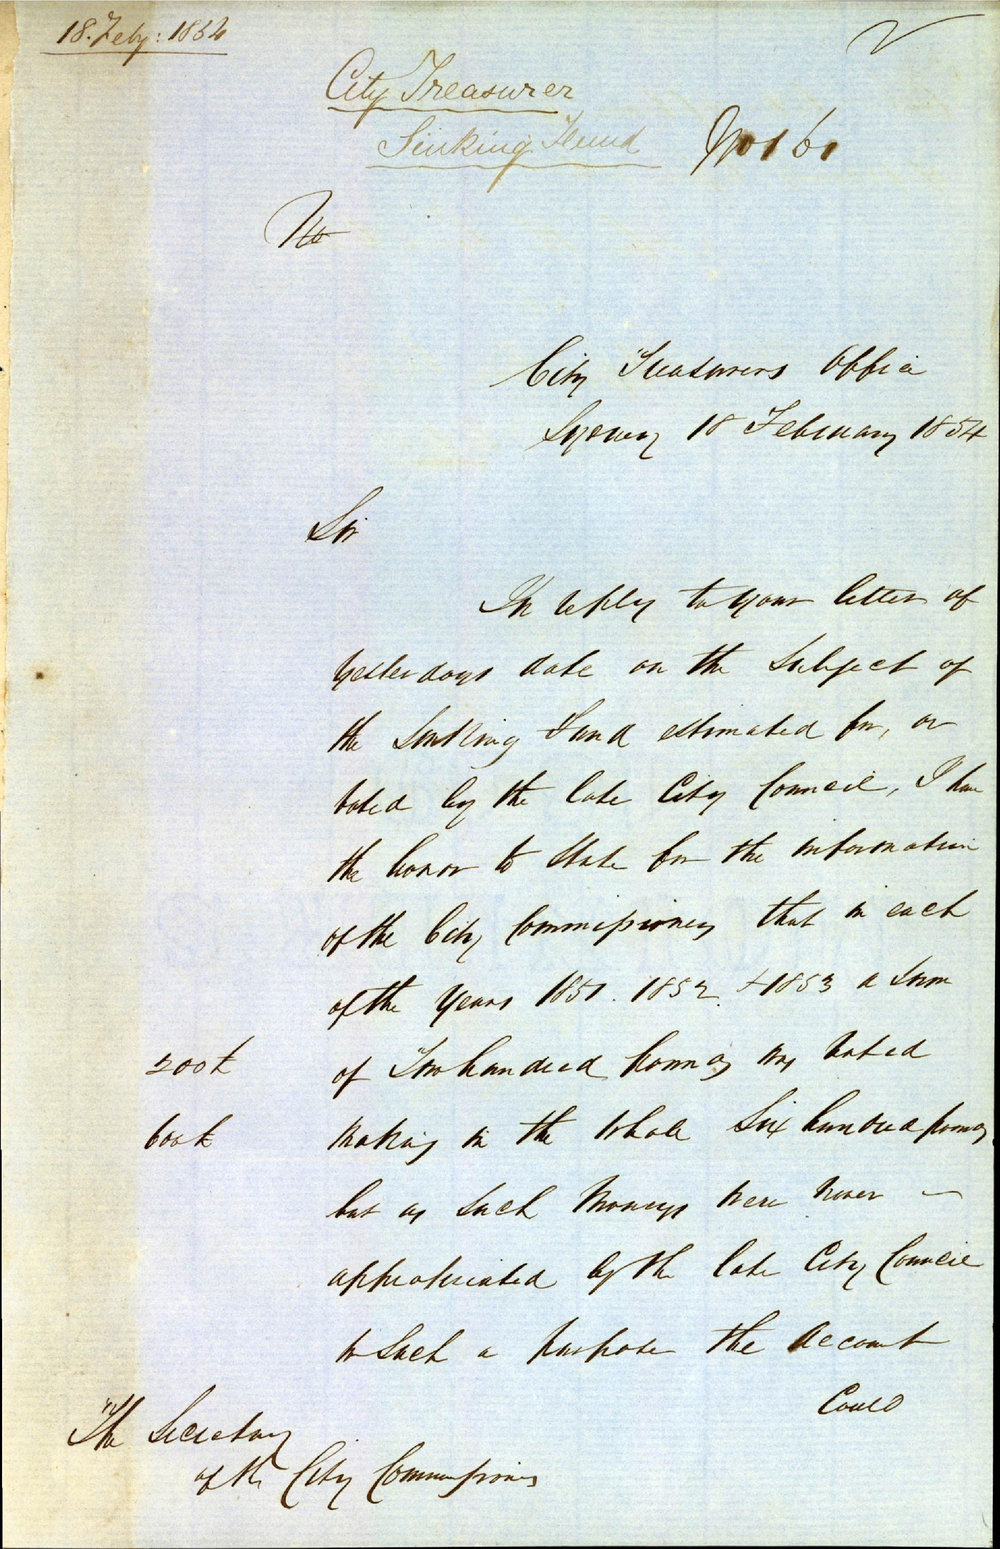 18. Feby: 1854
City Treasurer
Sinking Fund
No 161
No
City Treasurers Office
Sydney 18 February 1854
Sir
In reply to your letter of
yesterdays date on the subject of
the Sinking Fund estimated for, or
voted by the late City Council, I have
the honor to state for the information
of the City Commissioners that in each
of the Years 1851. 1852. & 1853 a Sum
200£
of Two hundred pounds was voted
600£
making in the whole Six hundred pounds
but as such Moneys were never
appropriated by the late City Council
to such a purpose the Account
Could
The Secretary
of the City Commissioners